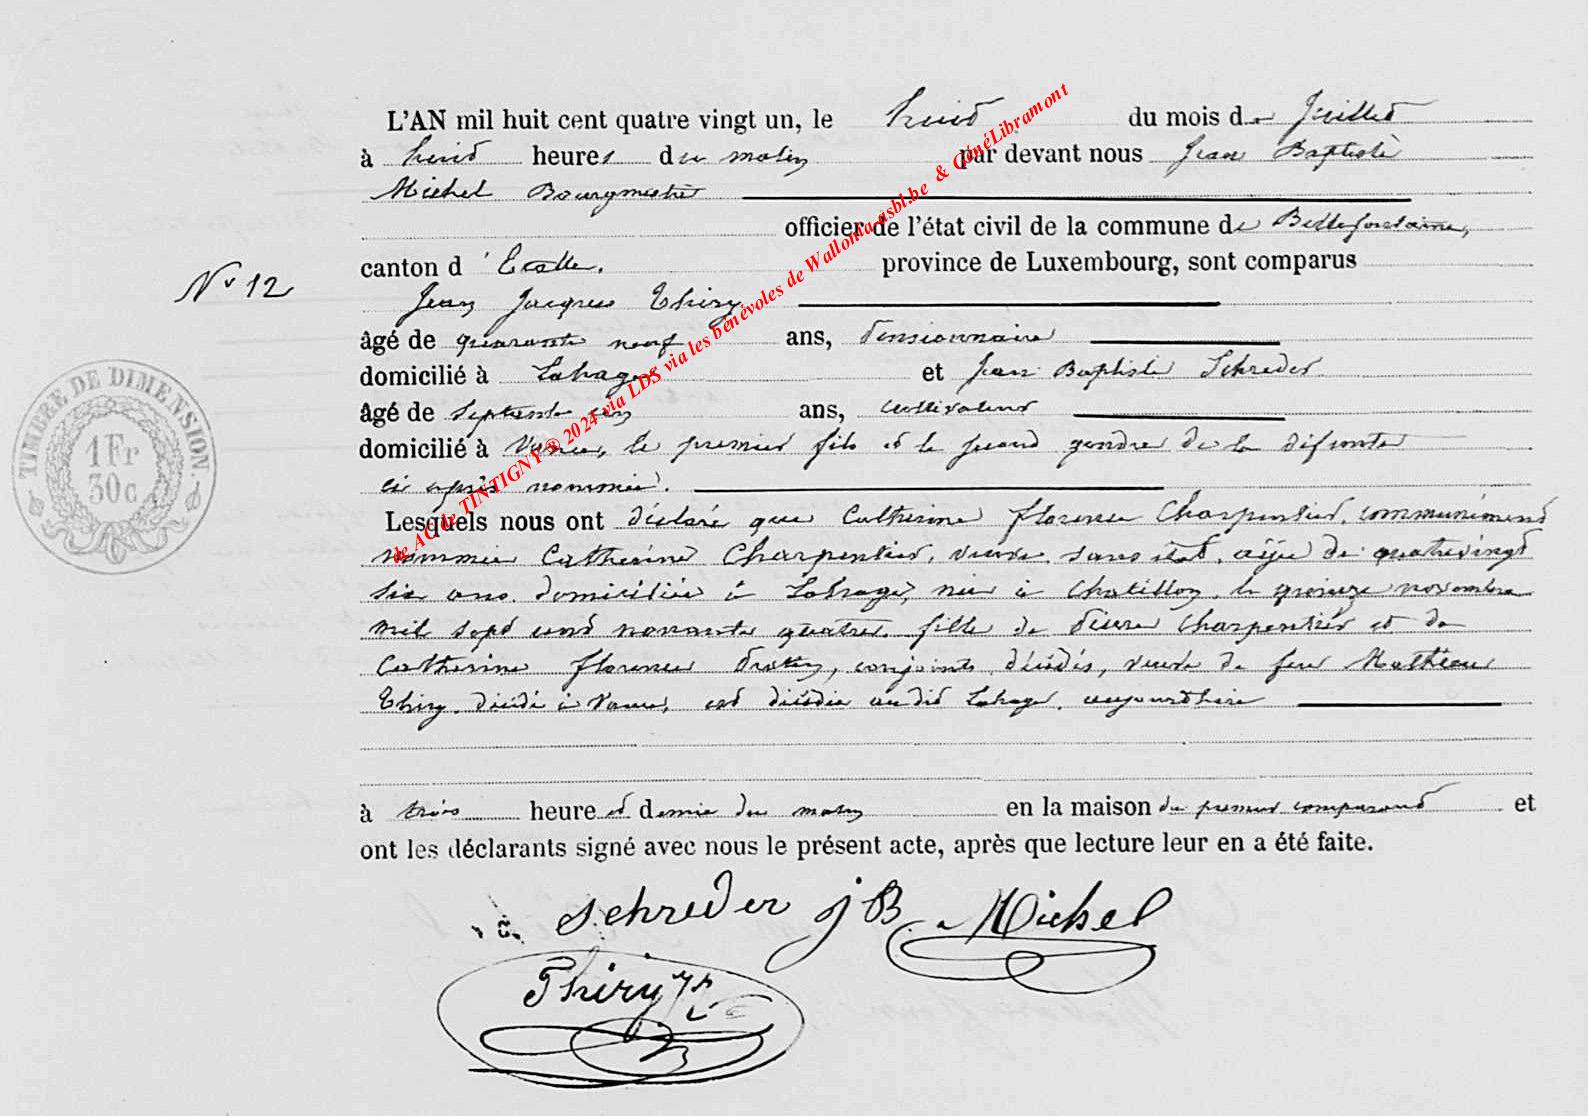 L'AN mil huit cent quatre vingt un, le huit du mois de Juillet
à huit heures du matin par devant nous Jean Baptiste
Michel Bourgmestre
officier de l'état civil de la commune de Bellefontaine,
canton d'Etalle, province de Luxembourg, sont comparus
N° 12
Jean Jacques Thiry
âgé de quarante neuf ans, Pensionnaire
domicilié à Lahage et Jean Baptiste Schreder
âgé de septante ans, cultivateur
domicilié à Vance, le premier fils et le second gendre de la défunte
ci après nommée.
Lesquels nous ont déclaré que Catherine Florence Charpentier, communément
nommée Catherine Charpentier, veuve, sans état, agée de quatrevingt
six ans, domiciliée à Lahage, née à Chatillon, le quinze novembre
mil sept cent nonante quatre, fille de Pierre Charpentier et de
Catherine Florence conjoints décédés, veuve de feu Mathieu
Thiry, décédé à Vance, est décédée audit Lahage, aujourdhui
à trois heure et demie du matin en la maison du premier comparant et
ont les déclarants signé avec nous le présent acte, après que lecture leur en a été faite.
Schreder J B Michel
Thiry JJ
TIMBRE DE DIMENSION.
1 Fr
30 c
de AC de TINTIGNY ® 2024 via LDS via les bénévoles de Wallonia asbl.be & GénéLibramont